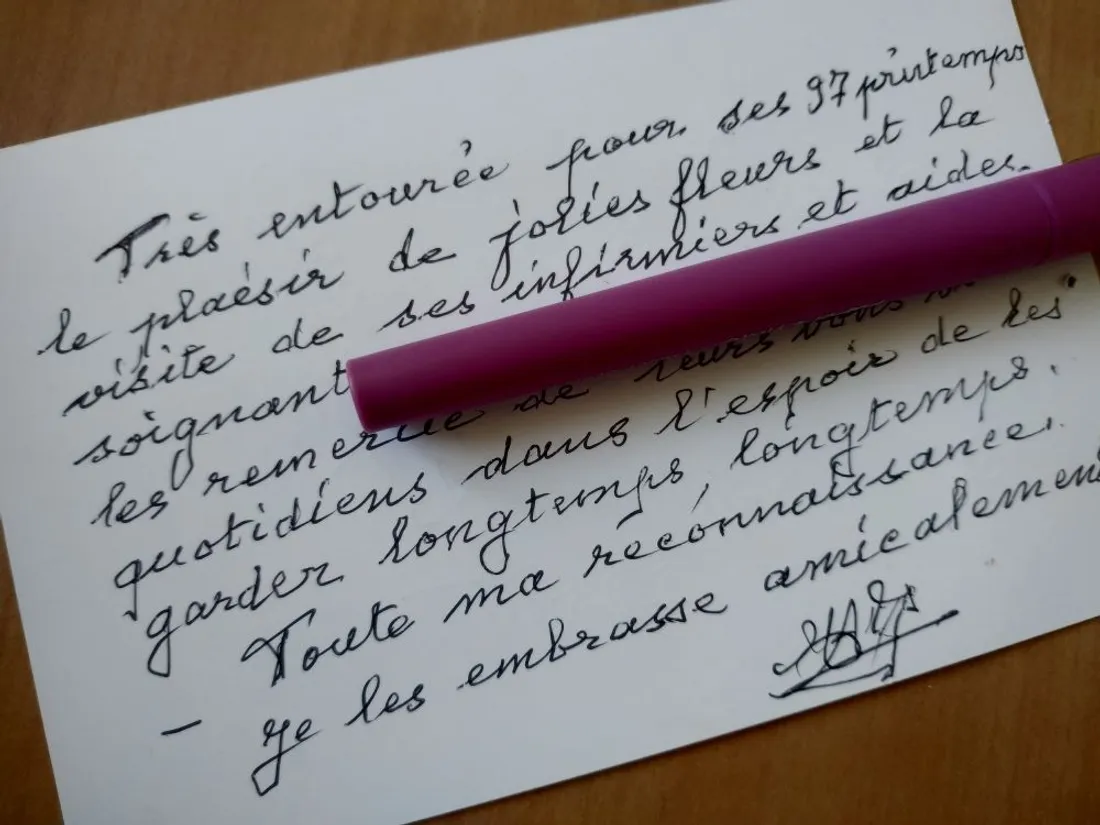 Très entourée pour ses 97 printemps
le plaisir de jolies fleurs et la
visite de ses infirmiers et aides-
soignant
les remercie de leurs
quotidiens dans l'espoir de les
garder longtemps, longtemps.
Toute ma reconnaissance.
- Je les embrasse amicalement